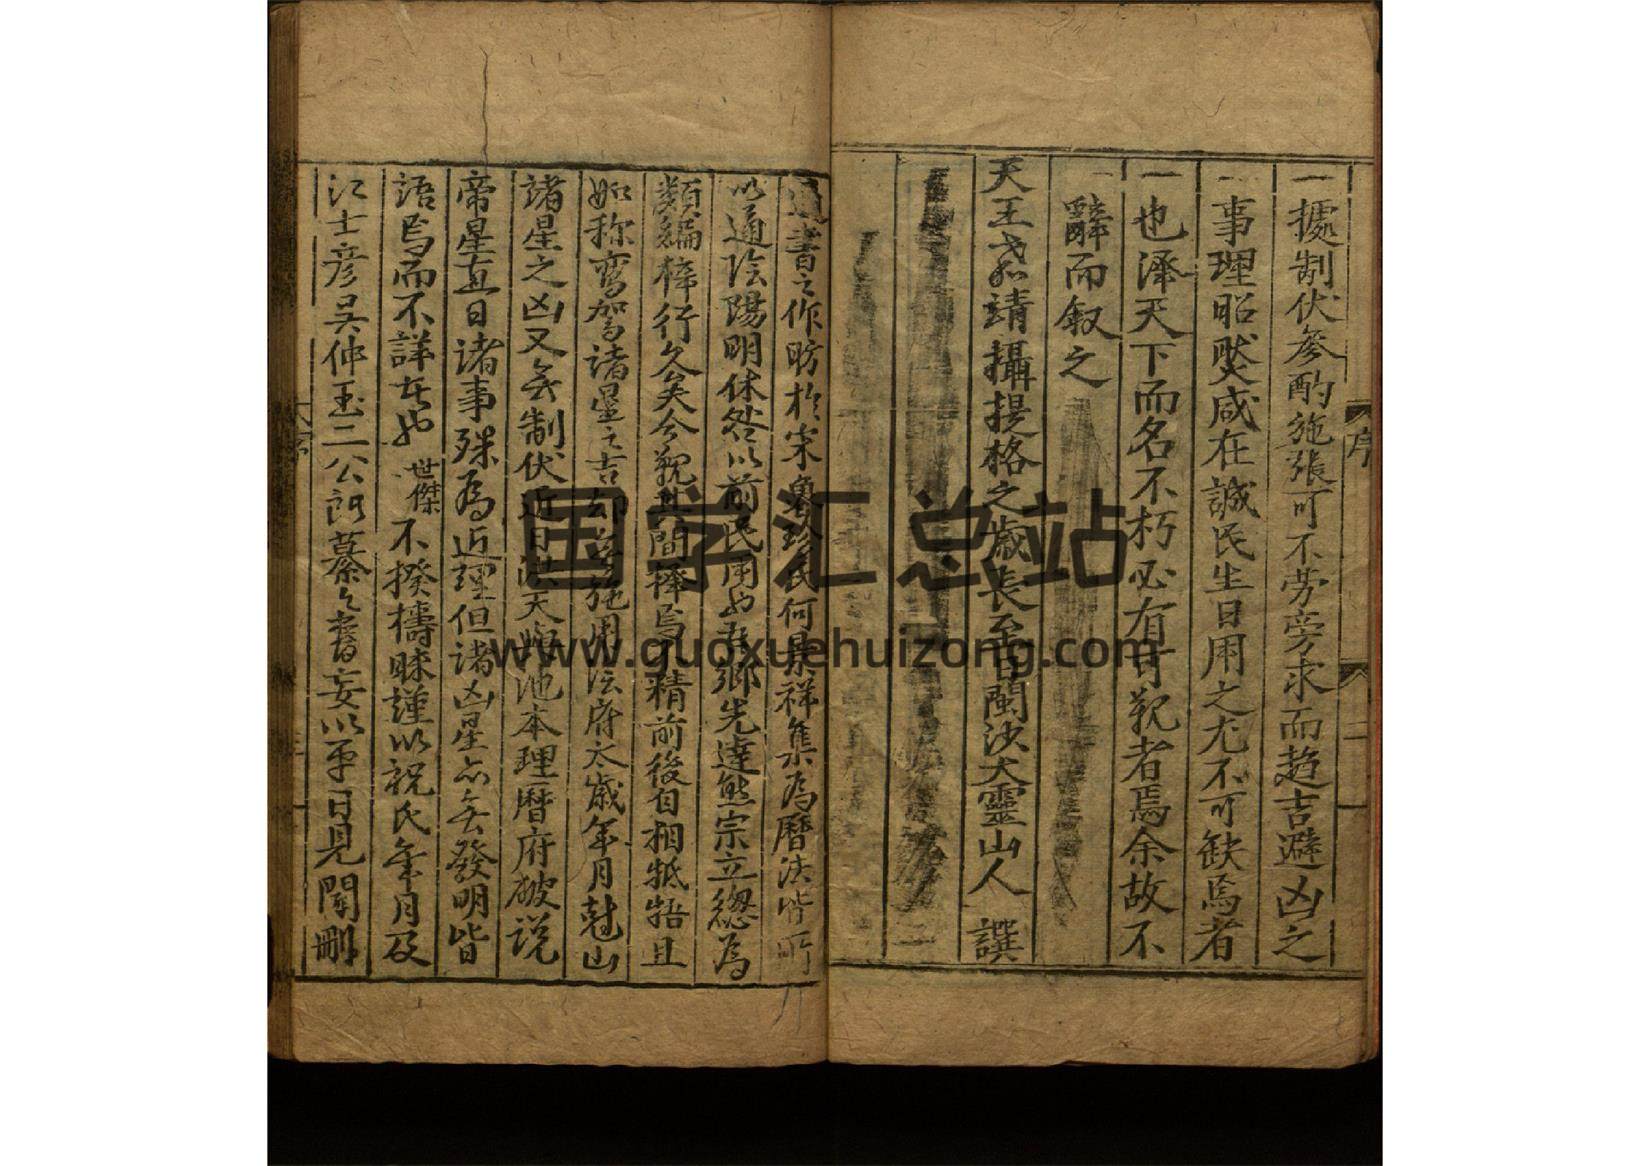 據制伏參酌施張可不劳旁求而趋吉避凶之
事理昭然咸在誠民生日用之尤不可缺焉者
也澤天下而名不朽必有可観者焉余故不
辭而叙之
天王 靖攝提格之歲長至日閩沙大靈山人 譔
序
二
通書之作昉於宋魯珍氏何景祥集為曆法皆所
以通陰陽明休咎以前民用也吾鄉先達熊宗立總為
類編梓行久矣今観其間擇焉不精前後自相牴牾且
如称鸞駕諸星之吉却無施用法府太歲年月尅山
諸星之凶又無制伏近日洪天 池本理曆府破说
帝星直日诸事殊為近理但诸凶星亦無發明皆
语焉而不詳者也世傑不揆檮昧謹以祝氏年月及
江士彦吴仲玉二公所纂 書妄以平日見聞刪
国学汇总站
www.guoxuehuizong.com